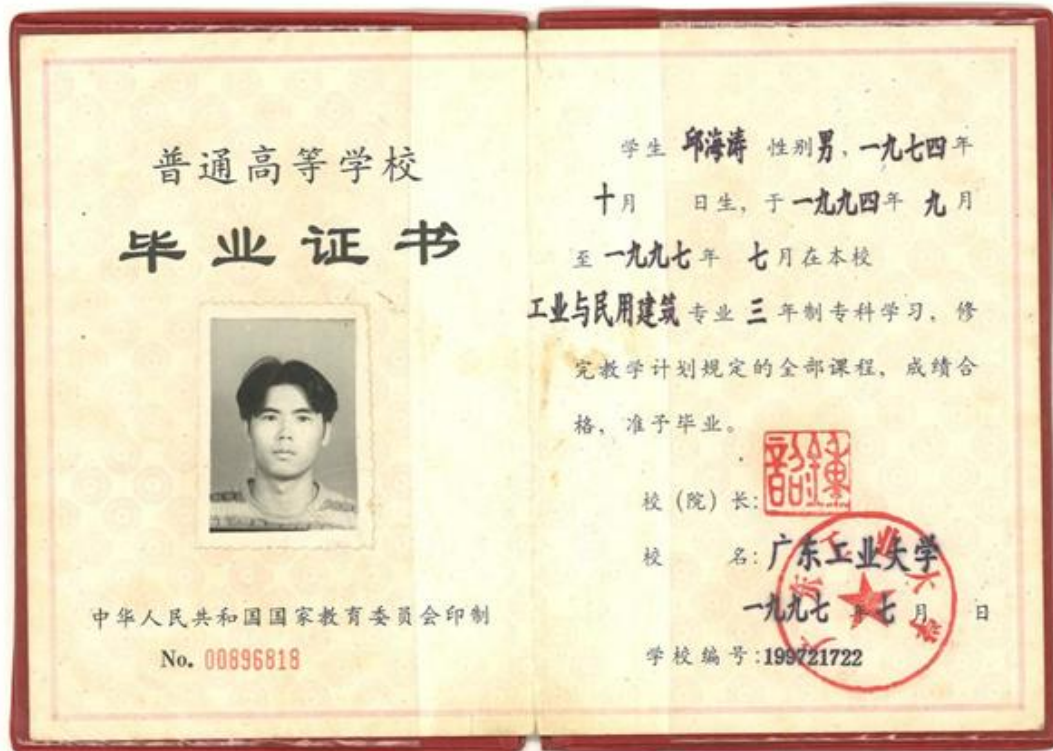 普通高等学校
毕业证书
中华人民共和国国家教育委员会印制
No. 00896818
学生 邱海涛 性别男，一九七四年
十月 日生，于一九九四年 九月
至一九九七年 七月在本校
工业与民用建筑专业 三 年制专科学习，修
完教学计划规定的全部课程，成绩合
格，准予毕业。
校(院)长:
校 名:广东工业大学
一九九七 年七 月 日
学校编号:199721722
广东工业大学